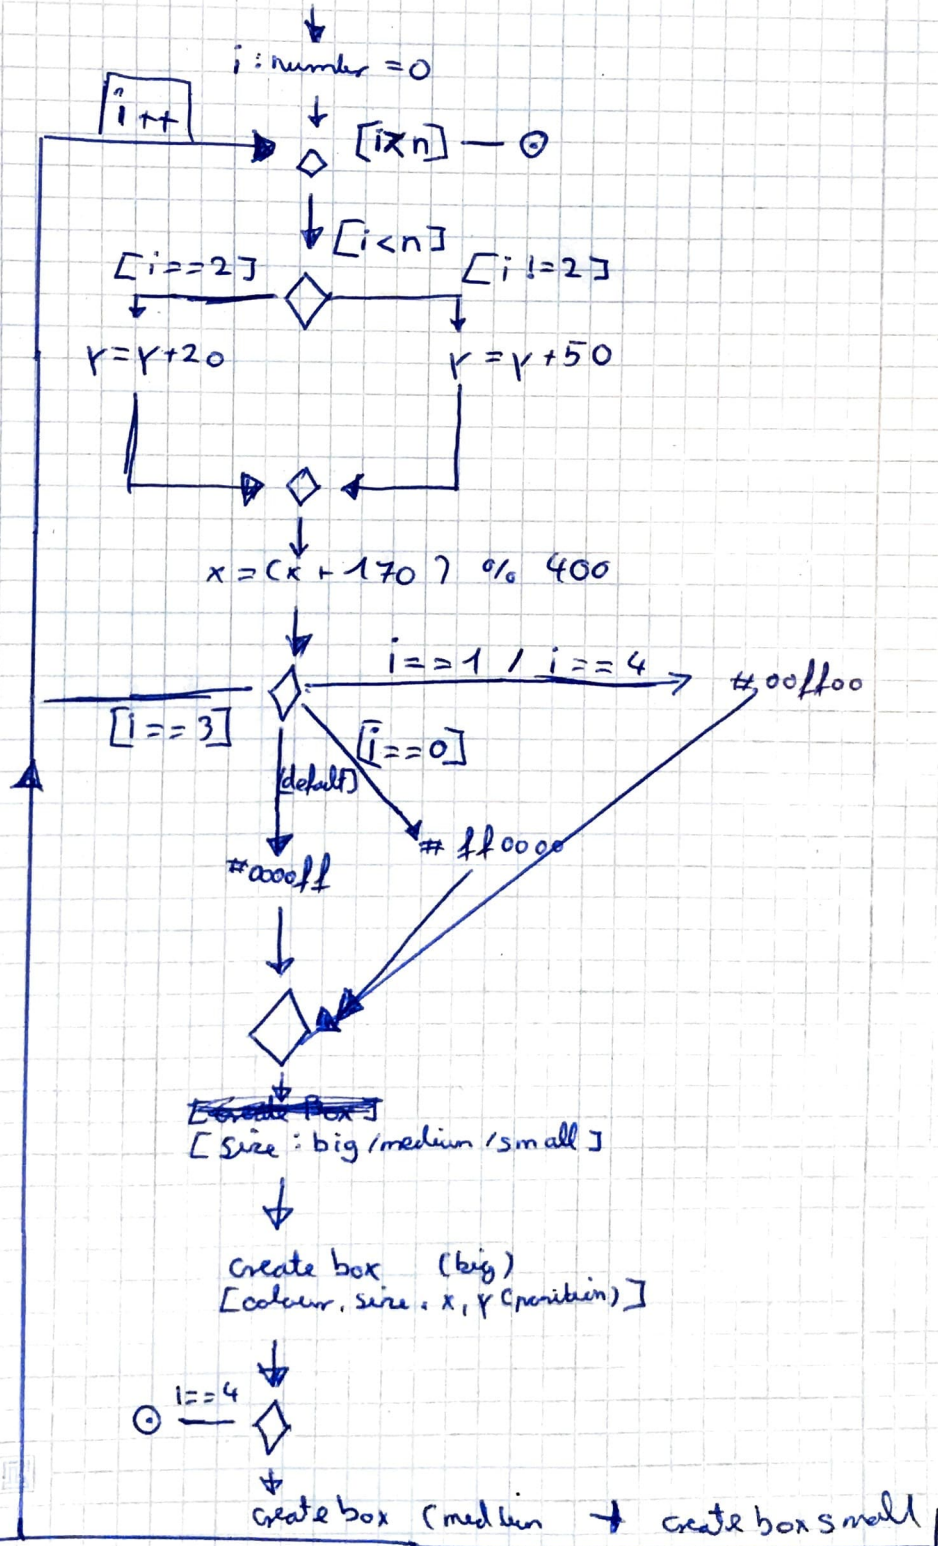 i : number = 0
i ++
[i≥n]
[i<n]
[i==2]
[i !=2]
Y=Y+20
Y = Y+50
x = (x + 170) % 400
i==1 / i==4
#00ff00
[i==3]
[i==0]
[default]
# ff0000
#0000ff
[create Box]
[size : big/medium/small]
create box (big)
[colour, size, x, Y (position)]
i==4
create box (medium → create box small